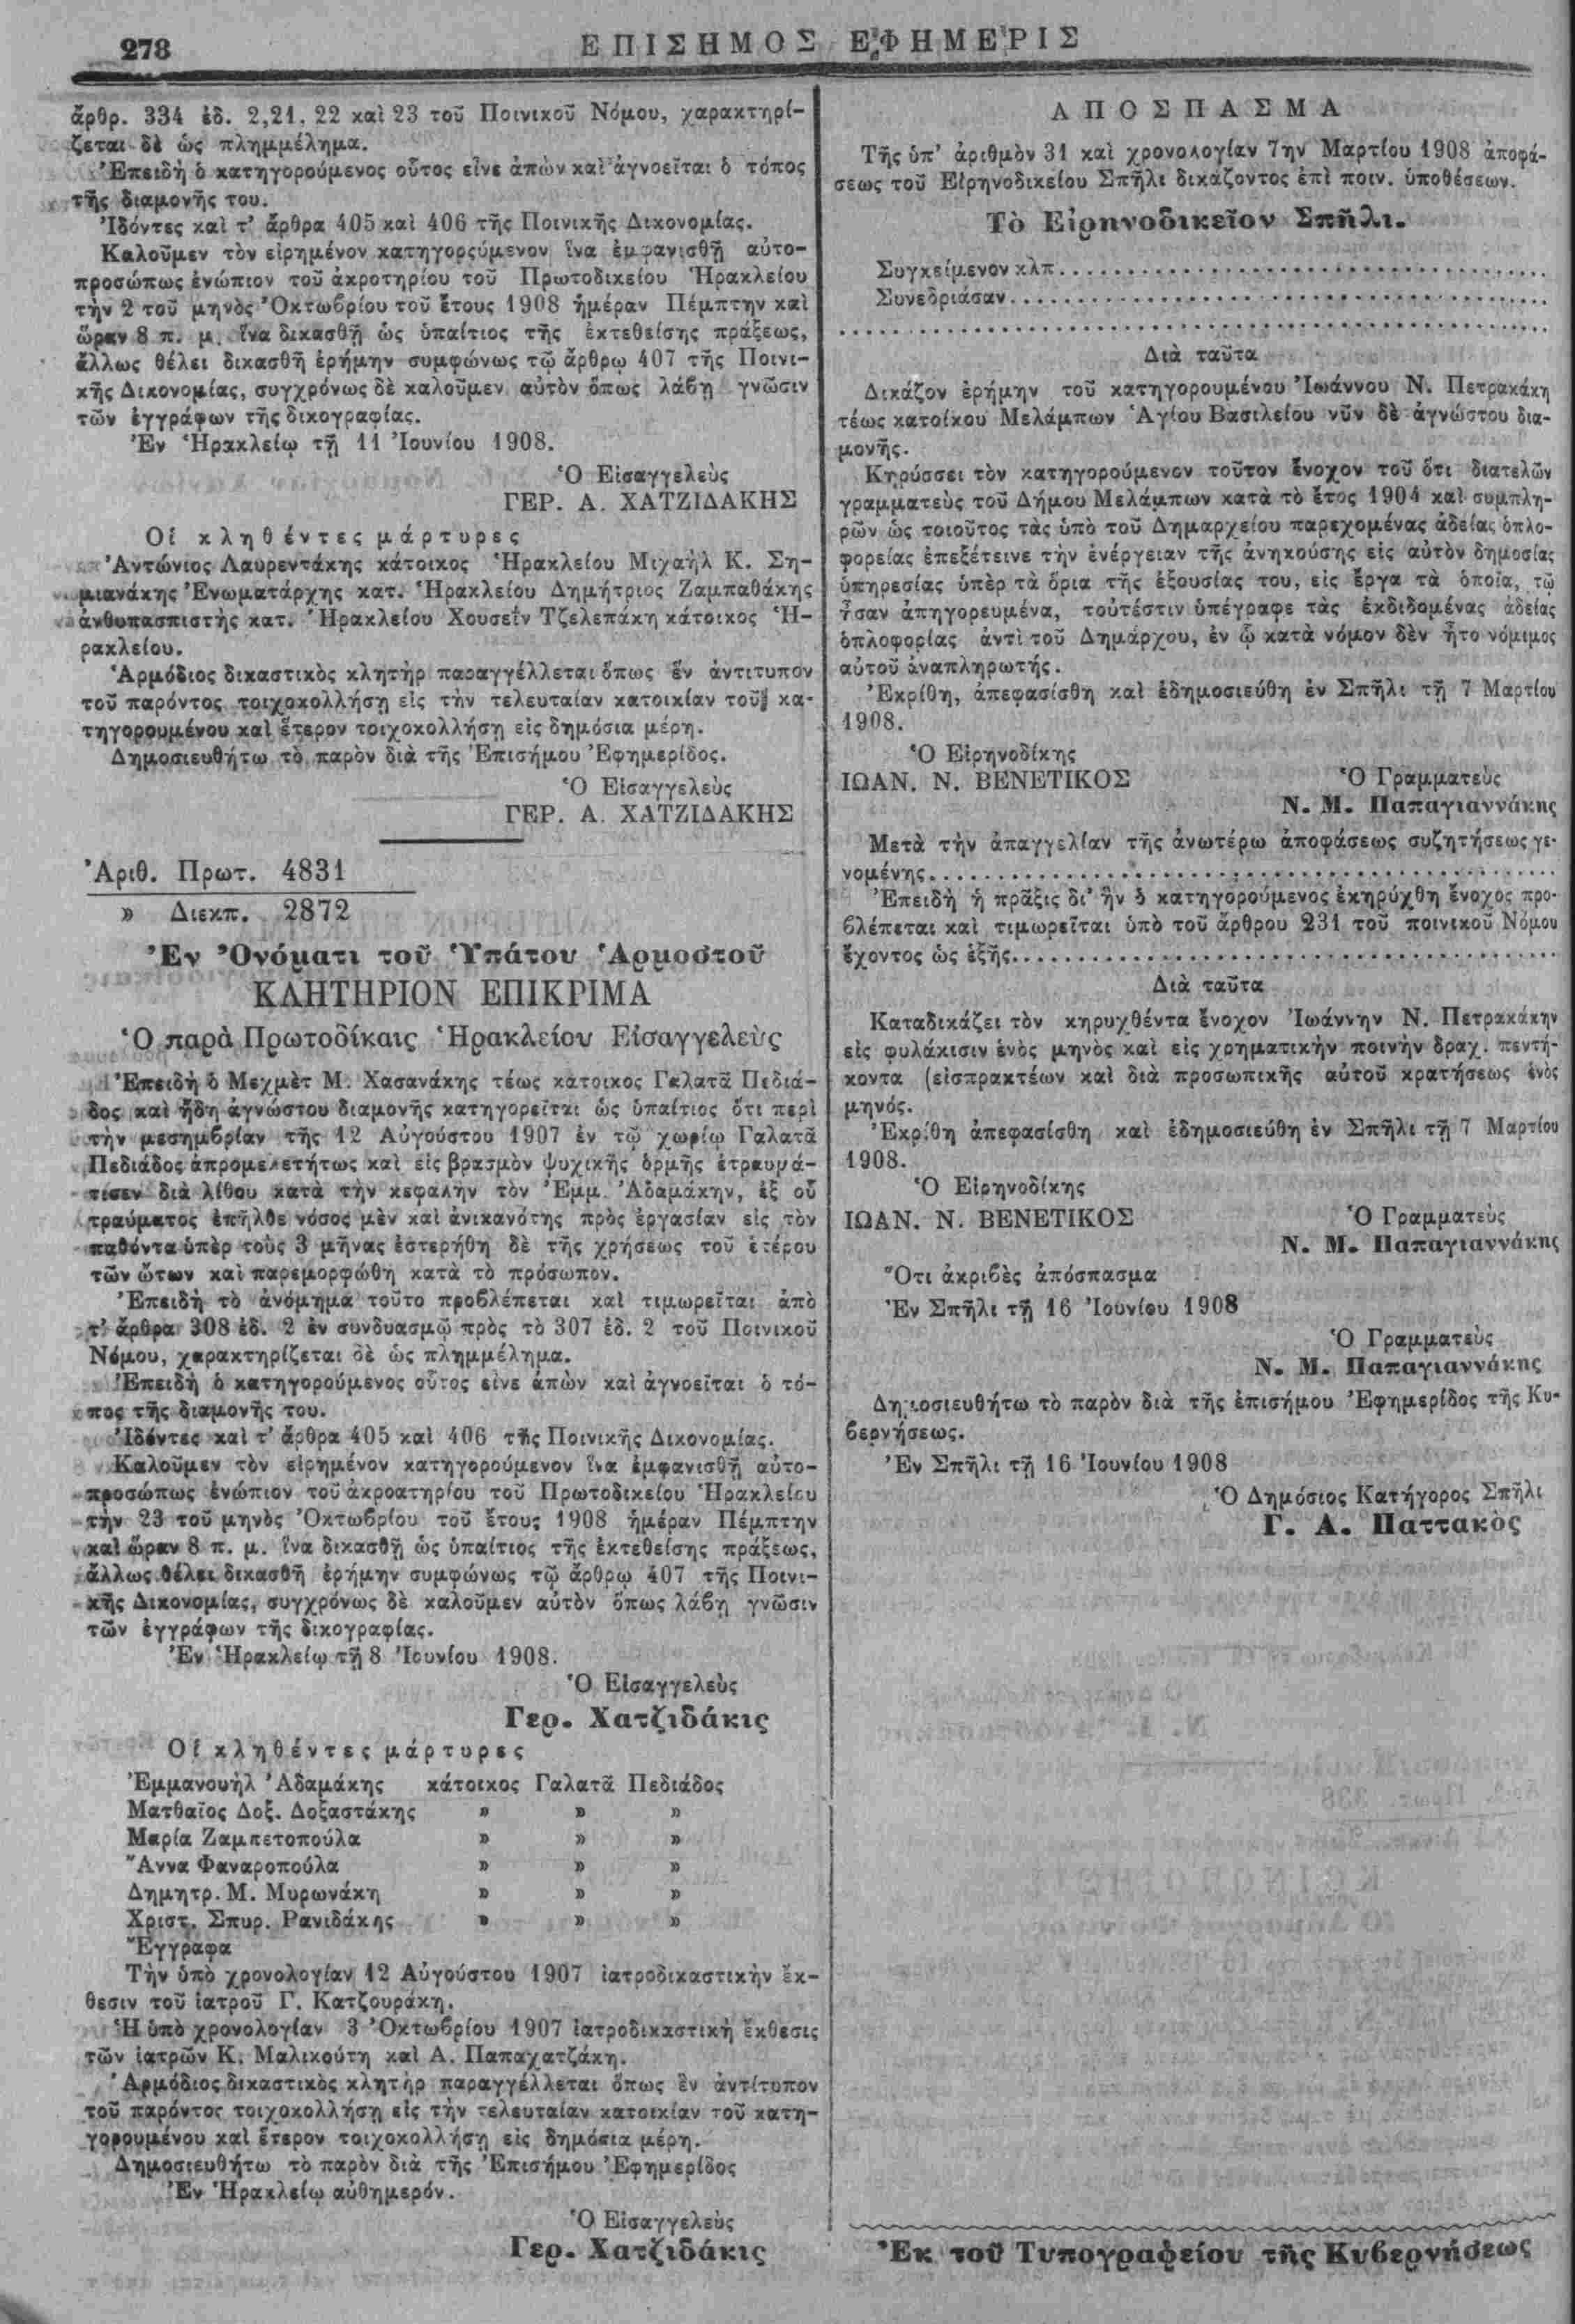 278
ΕΠΙΣΗΜΟΣ ΕΦΗΜΕΡΙΣ
ἄρθρ. 334 ἐδ. 2,21, 22 καὶ 23 τοῦ Ποινικοῦ Νόμου, χαρακτηρί-
ζεται δὲ ὡς πλημμέλημα.
Ἐπειδὴ ὁ κατηγορούμενος οὗτος εἶνε ἀπὼν καὶ ἀγνοεῖται ὁ τόπος
τῆς διαμονῆς του.
Ἰδόντες καὶ τ' ἄρθρα 405 καὶ 406 τῆς Ποινικῆς Δικονομίας.
Καλοῦμεν τὸν εἰρημένον κατηγορούμενον ἵνα ἐμφανισθῇ αὐτο-
προσώπως ἐνώπιον τοῦ ἀκροτηρίου τοῦ Πρωτοδικείου Ἡρακλείου
τὴν 2 τοῦ μηνὸς Ὀκτωβρίου τοῦ ἔτους 1908 ἡμέραν Πέμπτην καὶ
ὥραν 8 π. μ. ἵνα δικασθῇ ὡς ὑπαίτιος τῆς ἐκτεθείσης πράξεως,
ἄλλως θέλει δικασθῆ ἐρήμην συμφώνως τῷ ἄρθρῳ 407 τῆς Ποινι-
κῆς Δικονομίας, συγχρόνως δὲ καλοῦμεν αὐτὸν ὅπως λάβῃ γνῶσιν
τῶν ἐγγράφων τῆς δικογραφίας.
Ἐν Ἡρακλείῳ τῇ 11 Ἰουνίου 1908.
Ὁ Εἰσαγγελεὺς
ΓΕΡ. Α. ΧΑΤΖΙΔΑΚΗΣ
Οἱ κληθέντες μάρτυρες
Ἀντώνιος Λαυρεντάκης κάτοικος Ἡρακλείου Μιχαὴλ Κ. Ση-
μιανάκης Ἐνωματάρχης κατ. Ἡρακλείου Δημήτριος Ζαμπαθάκης
ἀνθυπασπιστὴς κατ. Ἡρακλείου Χουσεῒν Τζελεπάκη κάτοικος Ἡ-
ρακλείου.
Ἁρμόδιος δικαστικὸς κλητὴρ παραγγέλλεται ὅπως ἓν ἀντιτυπον
τοῦ παρόντος τοιχοκολλήσῃ εἰς τὴν τελευταίαν κατοικίαν τοῦ κα-
τηγορουμένου καὶ ἕτερον τοιχοκολλήσῃ εἰς δημόσια μέρη.
Δημοσιευθήτω τὸ παρὸν διὰ τῆς Ἐπισήμου Ἐφημερίδος.
Ὁ Εἰσαγγελεὺς
ΓΕΡ. Α. ΧΑΤΖΙΔΑΚΗΣ
Ἀριθ. Πρωτ. 4831
» Διεκπ. 2872
Ἐν Ὀνόματι τοῦ Ὑπάτου Ἁρμοστοῦ
ΚΛΗΤΗΡΙΟΝ ΕΠΙΚΡΙΜΑ
Ὁ παρὰ Πρωτοδίκαις Ἡρακλείου Εἰσαγγελεὺς
Ἐπειδὴ ὁ Μεχμὲτ Μ. Χασανάκης τέως κάτοικος Γαλατᾶ Πεδιά-
δος καὶ ἤδη ἀγνώστου διαμονῆς κατηγορεῖται ὡς ὑπαίτιος ὅτι περὶ
τὴν μεσημβρίαν τῆς 12 Αὐγούστου 1907 ἐν τῷ χωρίῳ Γαλατᾶ
Πεδιάδος ἀπρομελετήτως καὶ εἰς βρασμὸν ψυχικῆς ὁρμῆς ἐτραυμά-
τισεν διὰ λίθου κατὰ τὴν κεφαλὴν τὸν Ἐμμ. Ἀδαμάκην, ἐξ οὗ
τραύματος ἐπῆλθε νόσος μὲν καὶ ἀνικανότης πρὸς ἐργασίαν εἰς τὸν
παθόντα ὑπὲρ τοὺς 3 μῆνας ἐστερήθη δὲ τῆς χρήσεως τοῦ ἑτέρου
τῶν ὤτων καὶ παρεμορφώθη κατὰ τὸ πρόσωπον.
Ἐπειδὴ τὸ ἀνόμημα τοῦτο προβλέπεται καὶ τιμωρεῖται ἀπὸ
τ' ἄρθρα 308 ἐδ. 2 ἐν συνδυασμῷ πρὸς τὸ 307 ἐδ. 2 τοῦ Ποινικοῦ
Νόμου, χαρακτηρίζεται δὲ ὡς πλημμέλημα.
Ἐπειδὴ ὁ κατηγορούμενος οὗτος εἶνε ἀπὼν καὶ ἀγνοεῖται ὁ τό-
πος τῆς διαμονῆς του.
Ἰδόντες καὶ τ' ἄρθρα 405 καὶ 406 τῆς Ποινικῆς Δικονομίας.
Καλοῦμεν τὸν εἰρημένον κατηγορούμενον ἵνα ἐμφανισθῇ αὐτο-
προσώπως ἐνώπιον τοῦ ἀκροατηρίου τοῦ Πρωτοδικείου Ἡρακλείου
τὴν 23 τοῦ μηνὸς Ὀκτωβρίου τοῦ ἔτους 1908 ἡμέραν Πέμπτην
καὶ ὥραν 8 π. μ. ἵνα δικασθῇ ὡς ὑπαίτιος τῆς ἐκτεθείσης πράξεως,
ἄλλως θέλει δικασθῆ ἐρήμην συμφώνως τῷ ἄρθρῳ 407 τῆς Ποινι-
κῆς Δικονομίας, συγχρόνως δὲ καλοῦμεν αὐτὸν ὅπως λάβῃ γνῶσιν
τῶν ἐγγράφων τῆς δικογραφίας.
Ἐν Ἡρακλείῳ τῇ 8 Ἰουνίου 1908.
Ὁ Εἰσαγγελεὺς
Γερ. Χατζιδάκις
Οἱ κληθέντες μάρτυρες
Ἐμμανουὴλ Ἀδαμάκης κάτοικος Γαλατᾶ Πεδιάδος
Ματθαῖος Δοξ. Δοξαστάκης » » »
Μαρία Ζαμπετοπούλα » » »
Ἄννα Φαναροπούλα » » »
Δημητρ. Μ. Μυρωνάκη » » »
Χριστ. Σπυρ. Ρανιδάκης » » »
Ἔγγραφα
Τὴν ὑπὸ χρονολογίαν 12 Αὐγούστου 1907 ἰατροδικαστικὴν ἔκ-
θεσιν τοῦ ἰατροῦ Γ. Κατζουράκη.
Ἡ ὑπὸ χρονολογίαν 3 Ὀκτωβρίου 1907 ἰατροδικαστικὴ ἔκθεσις
τῶν ἰατρῶν Κ. Μαλικούτη καὶ Α. Παπαχατζάκη.
Ἁρμόδιος δικαστικὸς κλητὴρ παραγγέλλεται ὅπως ἓν ἀντίτυπον
τοῦ παρόντος τοιχοκολλήσῃ εἰς τὴν τελευταίαν κατοικίαν τοῦ κατη-
γορουμένου καὶ ἕτερον τοιχοκολλήσῃ εἰς δημόσια μέρη.
Δημοσιευθήτω τὸ παρὸν διὰ τῆς Ἐπισήμου Ἐφημερίδος
Ἐν Ἡρακλείῳ αὐθημερόν.
Ὁ Εἰσαγγελεὺς
Γερ. Χατζιδάκις
ΑΠΟΣΠΑΣΜΑ
Τῆς ὑπ' ἀριθμὸν 31 καὶ χρονολογίαν 7ην Μαρτίου 1908 ἀποφά-
σεως τοῦ Εἰρηνοδικείου Σπῆλι δικάζοντος ἐπὶ ποιν. ὑποθέσεων.
Τὸ Εἰρηνοδικεῖον Σπῆλι.
Συγκείμενον κλπ..............................
Συνεδριάσαν..............................
..............................
Διὰ ταῦτα
Δικάζον ἐρήμην τοῦ κατηγορουμένου Ἰωάννου Ν. Πετρακάκη
τέως κατοίκου Μελάμπων Ἁγίου Βασιλείου νῦν δὲ ἀγνώστου δια-
μονῆς.
Κηρύσσει τὸν κατηγορούμενον τοῦτον ἔνοχον τοῦ ὅτι διατελῶν
γραμματεὺς τοῦ Δήμου Μελάμπων κατὰ τὸ ἔτος 1904 καὶ συμπλη-
ρῶν ὡς τοιοῦτος τὰς ὑπὸ τοῦ Δημαρχείου παρεχομένας ἀδείας ὁπλο-
φορείας ἐπεξέτεινε τὴν ἐνέργειαν τῆς ἀνηκούσης εἰς αὐτὸν δημοσίας
ὑπηρεσίας ὑπὲρ τὰ ὅρια τῆς ἐξουσίας του, εἰς ἔργα τὰ ὁποῖα, τῷ
ἦσαν ἀπηγορευμένα, τοὐτέστιν ὑπέγραφε τὰς ἐκδιδομένας ἀδείας
ὁπλοφορίας ἀντὶ τοῦ Δημάρχου, ἐν ᾧ κατὰ νόμον δὲν ἦτο νόμιμος
αὐτοῦ ἀναπληρωτής.
Ἐκρίθη, ἀπεφασίσθη καὶ ἐδημοσιεύθη ἐν Σπῆλι τῇ 7 Μαρτίου
1908.
Ὁ Εἰρηνοδίκης
ΙΩΑΝ. Ν. ΒΕΝΕΤΙΚΟΣ
Ὁ Γραμματεὺς
Ν. Μ. Παπαγιαννάκης
Μετὰ τὴν ἀπαγγελίαν τῆς ἀνωτέρω ἀποφάσεως συζητήσεως γε-
νομένης..............................
Ἐπειδὴ ἡ πρᾶξις δι' ἣν ὁ κατηγορούμενος ἐκηρύχθη ἔνοχος προ-
βλέπεται καὶ τιμωρεῖται ὑπὸ τοῦ ἄρθρου 231 τοῦ ποινικοῦ Νόμου
ἔχοντος ὡς ἑξῆς..............................
Διὰ ταῦτα
Καταδικάζει τὸν κηρυχθέντα ἔνοχον Ἰωάννην Ν. Πετρακάκην
εἰς φυλάκισιν ἑνὸς μηνὸς καὶ εἰς χρηματικὴν ποινὴν δραχ. πεντή-
κοντα (εἰσπρακτέων καὶ διὰ προσωπικῆς αὐτοῦ κρατήσεως ἑνὸς
μηνός.
Ἐκρίθη ἀπεφασίσθη καὶ ἐδημοσιεύθη ἐν Σπῆλι τῇ 7 Μαρτίου
1908.
Ὁ Εἰρηνοδίκης
ΙΩΑΝ. Ν. ΒΕΝΕΤΙΚΟΣ
Ὁ Γραμματεὺς
Ν. Μ. Παπαγιαννάκης
Ὅτι ἀκριβὲς ἀπόσπασμα
Ἐν Σπῆλι τῇ 16 Ἰουνίου 1908
Ὁ Γραμματεὺς
Ν. Μ. Παπαγιαννάκης
Δημοσιευθήτω τὸ παρὸν διὰ τῆς ἐπισήμου Ἐφημερίδος τῆς Κυ-
βερνήσεως.
Ἐν Σπῆλι τῇ 16 Ἰουνίου 1908
Ὁ Δημόσιος Κατήγορος Σπῆλι
Γ. Α. Παττακὸς
Ἐκ τοῦ Τυπογραφείου τῆς Κυβερνήσεως